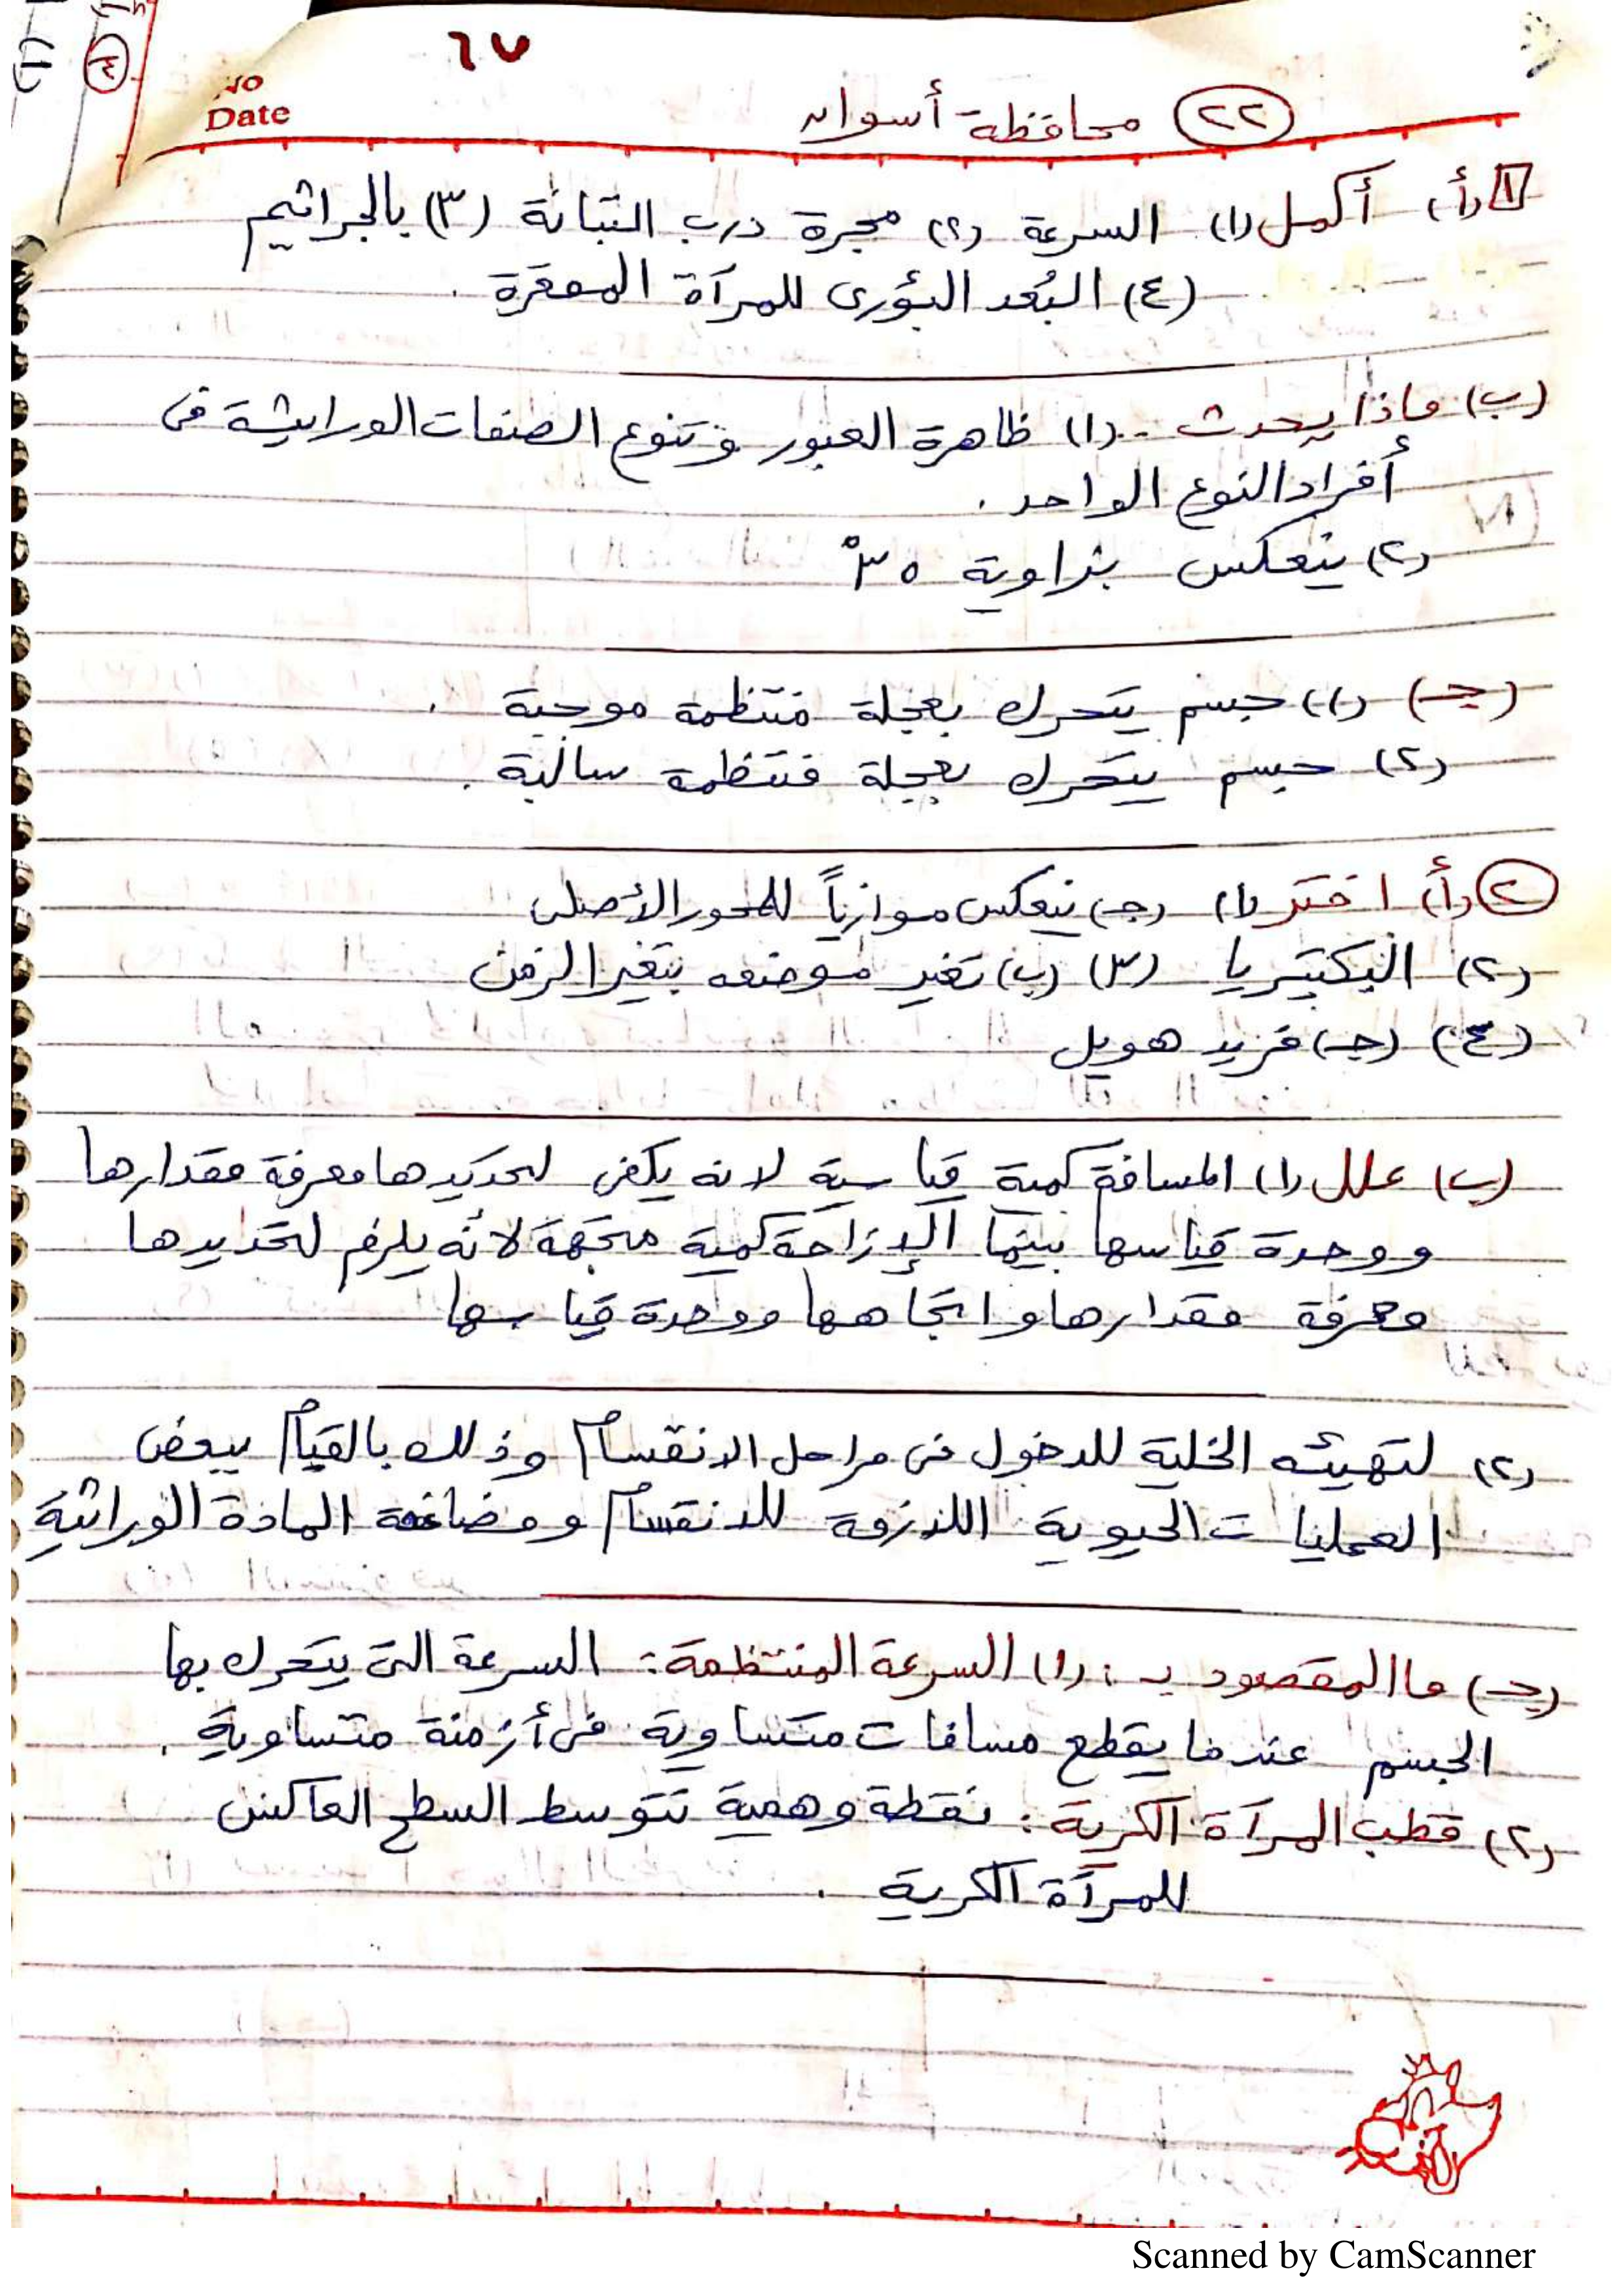 ٦٧
No
Date
(٢٢) محافظة أسوان
١ (أ) أكمل (١) السرعة (٢) مجرة درب التبانة (٣) بالجراثيم
(٤) البُعد البؤرى للمرآة المقعرة .
(ب) ماذا يحدث .. (١) ظاهرة العبور وتنوع الصفات الوراثية فى
أفراد النوع الواحد .
(٢) ينعكس بزاوية ٣٥°
(جـ) (١) جسم يتحرك بعجلة منتظمة موجبة .
(٢) جسم يتحرك بعجلة منتظمة سالبة .
(٢) (أ) اختر (١) (جـ) ينعكس موازياً للمحور الأصلى
(٢) البكتيريا (٣) (ب) تغير موضعه بتغير الزمن
(٤) (جـ) فريد هويل
(ب) علل (١) المسافة كمية قياسية لانه يكفى لتحديدها معرفة مقدارها
ووحدة قياسها بينما الإزاحة كمية متجهة لأنه يلزم لتحديدها
معرفة مقدارها واتجاهها ووحدة قياسها
(٢) لتهيئه الخلية للدخول فى مراحل الانقسام وذلك بالقيام ببعض
العمليات الحيوية اللازمة للانقسام ومضاعفة المادة الوراثية
(جـ) ما المقصود بـ : (١) السرعة المنتظمة : السرعة التى يتحرك بها
الجسم عندما يقطع مسافات متساوية فى أزمنة متساوية .
(٢) قطب المرآة الكرية : نقطة وهمية تتوسط السطح العاكس
للمرآة الكرية .
Scanned by CamScanner